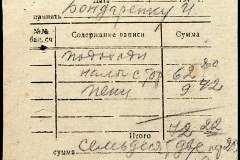 Дата
принять Бондаренку И
№№ бал. сч. Содержание записи Сумма
подоход
налог с гр 62 80
пени 9 42
Итого 72 22
сумма семьдесят две